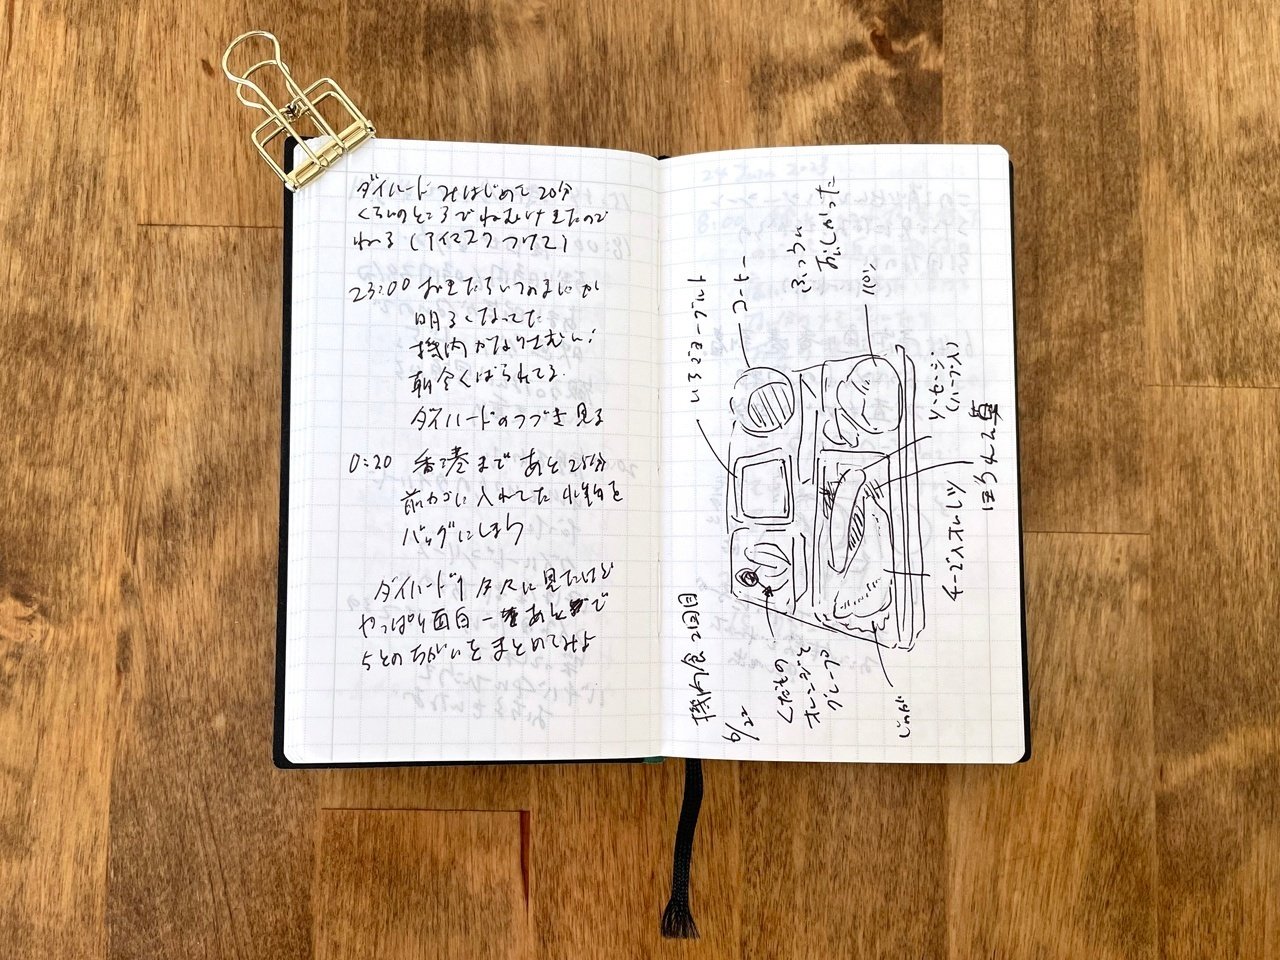 ダイハードみはじめて20分
くらいのところでねむけきたので
ねる(アイマスクつけて)
23:00 おきたらいつのまにか
明るくなってた
機内かなり寒い!
朝食くばられてる
ダイハードのつづき見る
0:20 香港まであと25分
前かごに入れてた小物を
バッグにしまう
ダイハード1 久々に見たけど
やっぱり面白ーい あとで
5とのちがいをまとめてみよ
機内食 2回目
6/22
いちごヨーグルト
コーヒー
ふつうに
おいしかった
パン
ソーセージ
(ハーブ入)
ほうれん草
チーズ入オムレツ
じゃが
くだもの
オレンジと
グレープ